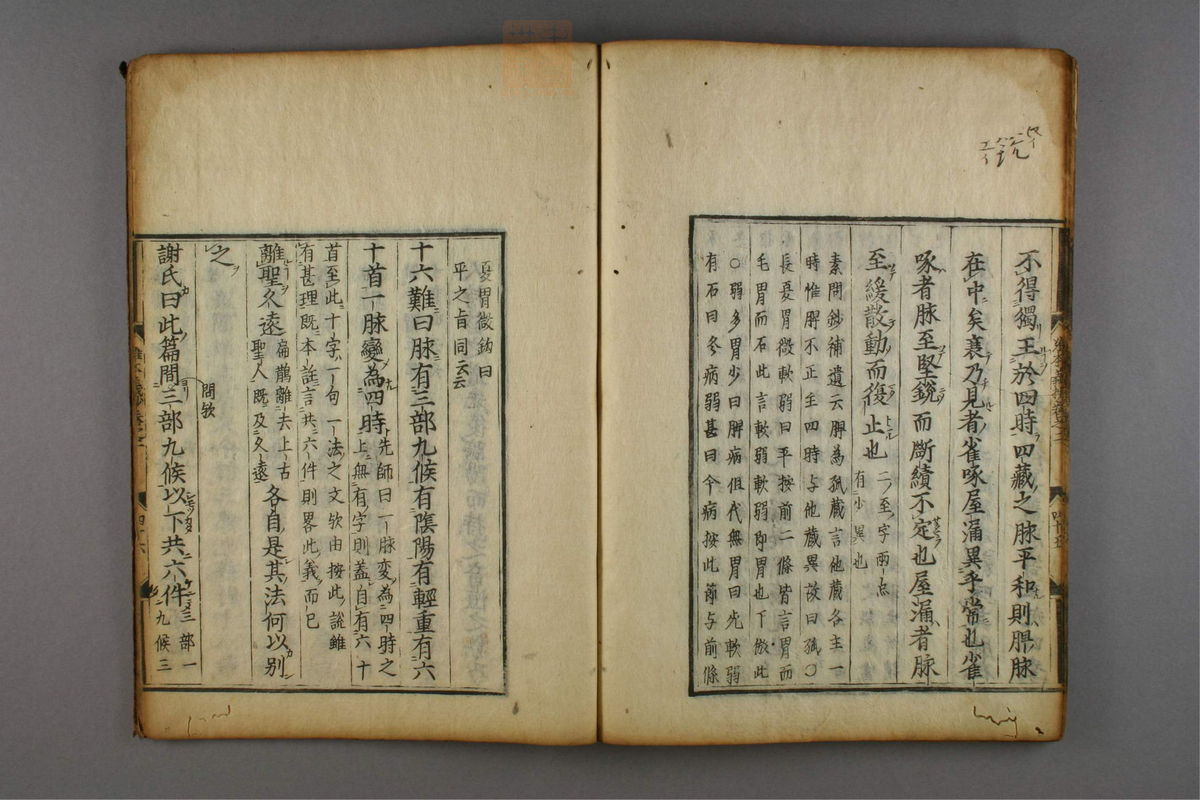 不得獨王於四時四藏之脉平和則脾脉
在中矣衰乃見者雀啄屋漏異乎常也雀
啄者脉至堅銳而斷續不定也屋漏者脉
至緩散動而復止也二ノ至字兩ニ点
有少異也
素問鈔補遺云脾為孤藏言他藏各主一
時惟脾不正主四時与他藏異故曰孤〇
長夏胃微軟弱曰平按前二條皆言胃而
毛胃而石此言軟弱軟弱即胃也下倣此
〇弱多胃少曰脾病但代無胃曰死軟弱
有石曰冬病弱甚曰今病按此節与前條
憂胃微鈎曰
平之旨同云云
十六難曰脉有三部九候有陰陽有輕重有六
十首一脉變為四時先師曰一脉変為四時之
上無有字則蓋自有六十
首至此十字一句一法之文欤由按此說雖
有甚理既本註言共六件則畧此義而已
離聖久遠扁鵲離去上古
聖人既及久遠各自是其法何以別
之
問欤
謝氏曰此篇問三部九候以下共六件三部一
九候三